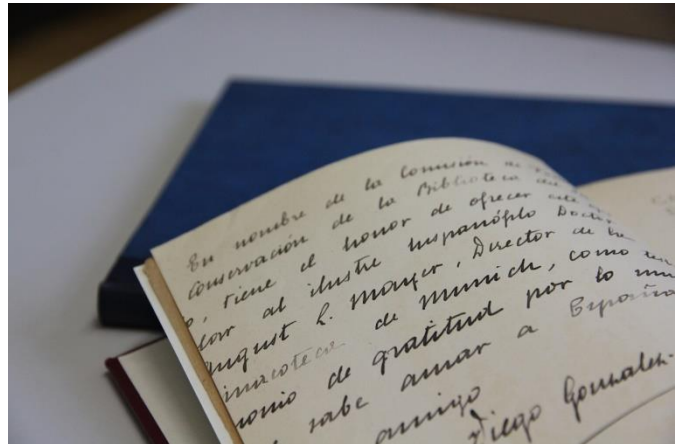 En nombre de la Comisión de
Conservación de la Biblioteca del
, tiene el honor de ofrecer este
al ilustre hispanófilo Doctor
August L. Mayer, Director de la
Pinacoteca de Munich, como tes
monio de gratitud por lo mu
sabe amar a España
amigo
Diego Gonzalez.